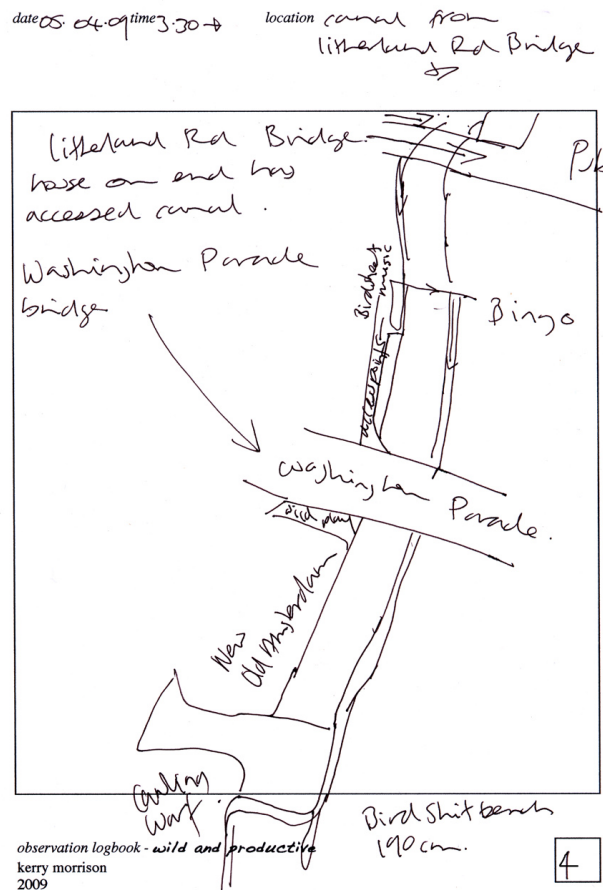 date 05.04.09 time 3.30 → location canal from
litherland Rd Bridge
litherland Rd Bridge.
house on end has
accessed canal.
Pub
Washington Parade
bridge
Birdsheet
music
Bingo
access points
Washington Parade.
bird play
New
Old Amsterdam
Wharf.
Bird Shit bench
190 cm.
observation logbook - wild and productive
kerry morrison
2009
4